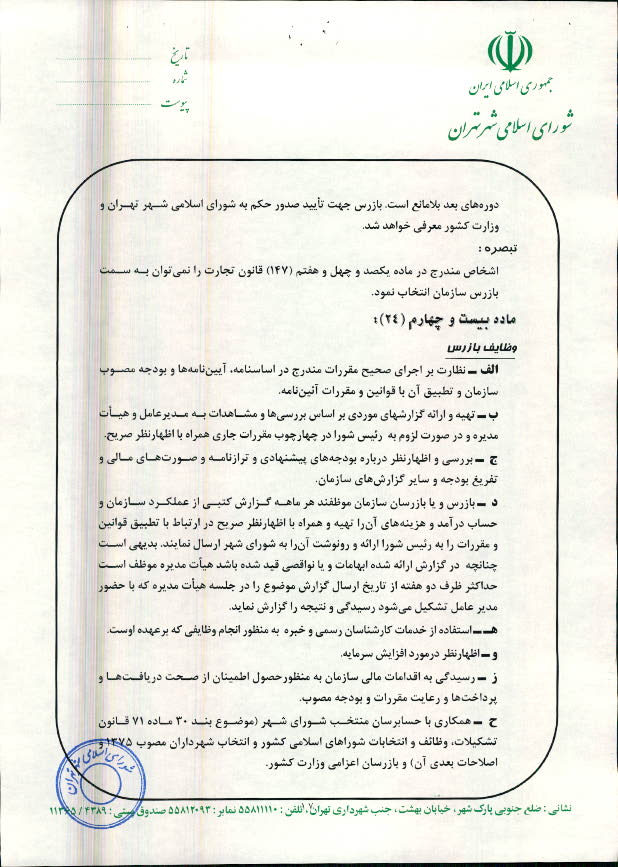 جمهوری اسلامی ایران
شورای اسلامی شهر تهران
تاریخ
شماره
پیوست
دوره‌های بعد بلامانع است. بازرس جهت تأیید صدور حکم به شورای اسلامی شهر تهران و
وزارت کشور معرفی خواهد شد.
تبصره :
اشخاص مندرج در ماده یکصد و چهل و هفتم (۱۴۷) قانون تجارت را نمی‌توان به سمت
بازرس سازمان انتخاب نمود.
ماده بیست و چهارم (۲۴):
وظایف بازرس
الف ـ نظارت بر اجرای صحیح مقررات مندرج در اساسنامه، آیین‌نامه‌ها و بودجه مصوب
سازمان و تطبیق آن با قوانین و مقررات آئین‌نامه.
ب ـ تهیه و ارائه گزارشهای موردی بر اساس بررسی‌ها و مشاهدات به مدیرعامل و هیأت
مدیره و در صورت لزوم به رئیس شورا در چهارچوب مقررات جاری همراه با اظهارنظر صریح.
ج ـ بررسی و اظهارنظر درباره بودجه‌های پیشنهادی و ترازنامه و صورت‌های مالی و
تفریغ بودجه و سایر گزارش‌های سازمان.
د ـ بازرس و یا بازرسان سازمان موظفند هر ماهه گزارش کتبی از عملکرد سازمان و
حساب درآمد و هزینه‌های آن‌را تهیه و همراه با اظهارنظر صریح در ارتباط با تطبیق قوانین
و مقررات را به رئیس شورا ارائه و رونوشت آن‌را به شورای شهر ارسال نمایند. بدیهی است
چنانچه در گزارش ارائه شده ابهامات و یا نواقصی قید شده باشد هیأت مدیره موظف است
حداکثر ظرف دو هفته از تاریخ ارسال گزارش موضوع را در جلسه هیأت مدیره که با حضور
مدیر عامل تشکیل می‌شود رسیدگی و نتیجه را گزارش نماید.
هـ ـ استفاده از خدمات کارشناسان رسمی و خبره به منظور انجام وظایفی که برعهده اوست.
و ـ اظهارنظر درمورد افزایش سرمایه.
ز ـ رسیدگی به اقدامات مالی سازمان به منظورحصول اطمینان از صحت دریافت‌ها و
پرداخت‌ها و رعایت مقررات و بودجه مصوب.
ح ـ همکاری با حسابرسان منتخب شورای شهر (موضوع بند ۳۰ ماده ۷۱ قانون
تشکیلات، وظائف و انتخابات شوراهای اسلامی کشور و انتخاب شهرداران مصوب ۱۳۷۵ و
اصلاحات بعدی آن) و بازرسان اعزامی وزارت کشور.
شورای اسلامی شهر تهران
نشانی : ضلع جنوبی پارک شهر، خیابان بهشت، جنب شهرداری تهران، تلفن : ۵۵۸۱۱۱۱۰ نمابر : ۵۵۸۱۲۰۹۳ صندوق پستی : ۴۳۸۹ / ۱۱۳۶۵